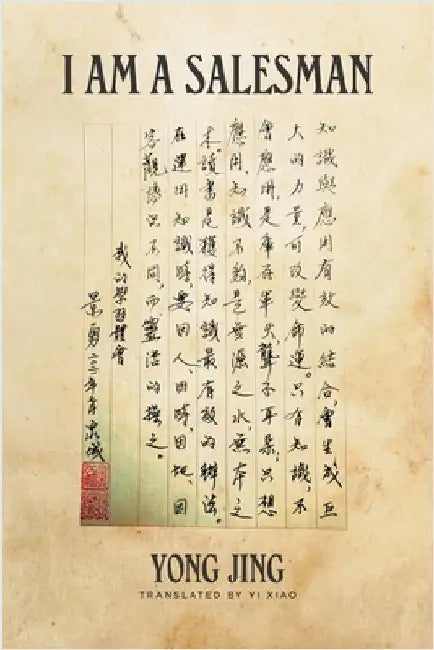 I AM A SALESMAN
知識與應用有效的結合,會生成巨
大的力量,可改變命運。只有知識,不
會應用,是庫存軍火,聾子耳朵;只想
應用,知識不夠,是無源之水,無本之
木。讀書是獲得知識最有效的辦法。
在運用知識時,要因人、因時、因地、因
客觀情況不同,而靈活的操之。
我的學習體會
景勇
YONG JING
TRANSLATED BY YI XIAO